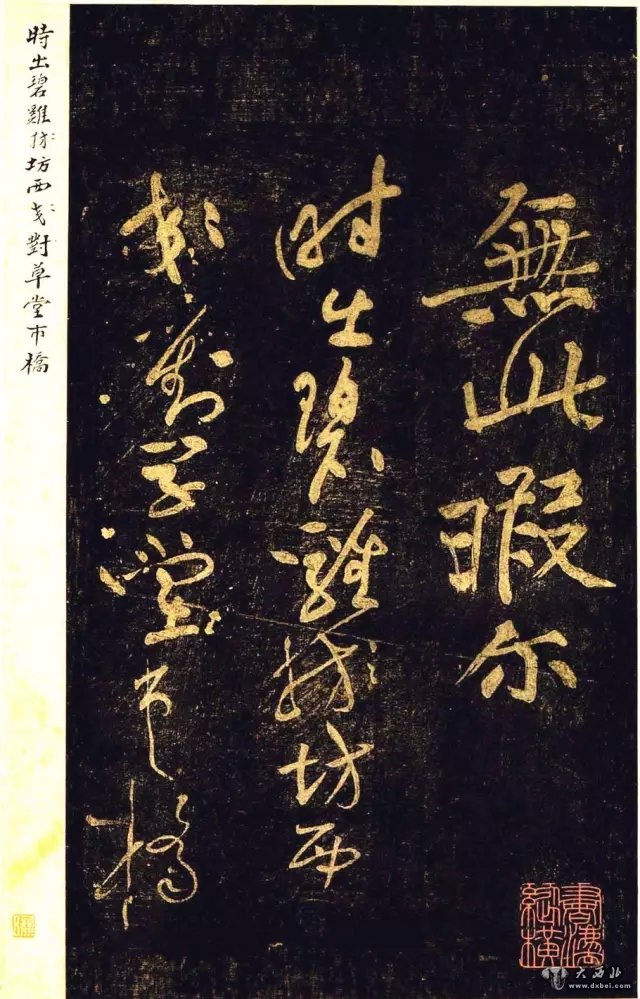 無此暇尔
時出碧雞坊西
對草堂市橋
時出碧雞坊西對草堂市橋
大西北
www.dxbei.com